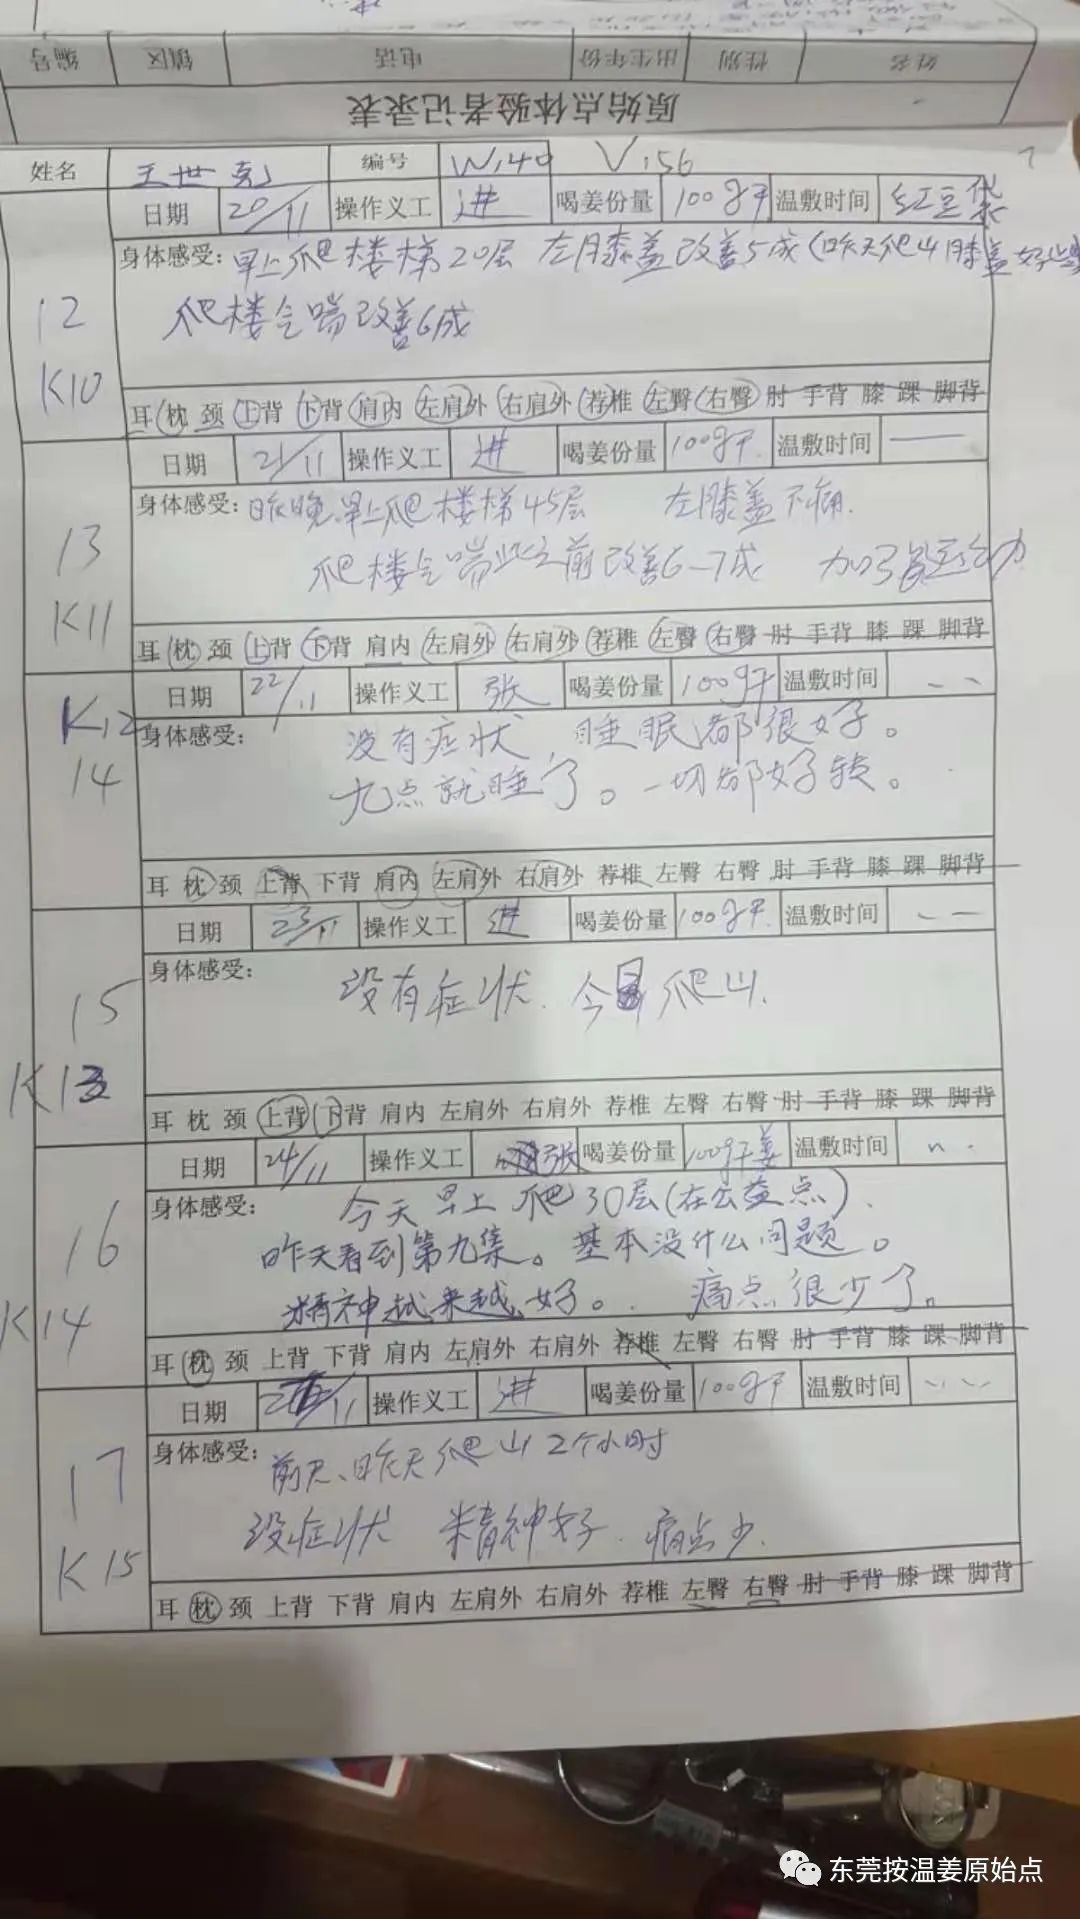 姓名 性别 出生年份 电话 镇区 编号
原始点体验者记录表
姓名 王世克 编号 W140 V156
日期 20/11 操作义工 进 喝姜份量 100g干 温敷时间 红豆袋
身体感受: 早上爬楼梯20层 左膝盖改善5成(昨天爬山膝盖好些
12 爬楼气喘改善6成
K10
耳 枕 颈 上背 下背 肩内 左肩外 右肩外 荐椎 左臀 右臀 肘 手背 膝 踝 脚背
日期 21/11 操作义工 进 喝姜份量 100g干 温敷时间 —
身体感受: 昨晚.早上爬楼梯45层 左膝盖不痛.
13 爬楼气喘比之前改善6-7成
K11
耳 枕 颈 上背 下背 肩内 左肩外 右肩外 荐椎 左臀 右臀 肘 手背 膝 踝 脚背
日期 22/11 操作义工 张 喝姜份量 100g干 温敷时间
K12 身体感受: 没有症状,睡眠都很好。
14 九点就睡了。一切都好转。
耳 枕 颈 上背 下背 肩内 左肩外 右肩外 荐椎 左臀 右臀 肘 手背 膝 踝 脚背
日期 23/11 操作义工 进 喝姜份量 100g干 温敷时间
身体感受: 没有症状. 今 爬山.
15
K13
耳 枕 颈 上背 下背 肩内 左肩外 右肩外 荐椎 左臀 右臀 肘 手背 膝 踝 脚背
日期 24/11 操作义工 张 喝姜份量 100g干姜 温敷时间
身体感受: 今天早上爬30层(在公益点).
16 昨天看到第九集。基本没什么问题。
精神越来越好。 痛点很少了。
K14
耳 枕 颈 上背 下背 肩内 左肩外 右肩外 荐椎 左臀 右臀 肘 手背 膝 踝 脚背
日期 /11 操作义工 进 喝姜份量 100g干 温敷时间
身体感受: 前天、昨天爬山2个小时
17 没症状 精神好. 痛点少.
K15
耳 枕 颈 上背 下背 肩内 左肩外 右肩外 荐椎 左臀 右臀 肘 手背 膝 踝 脚背
东莞按温姜原始点